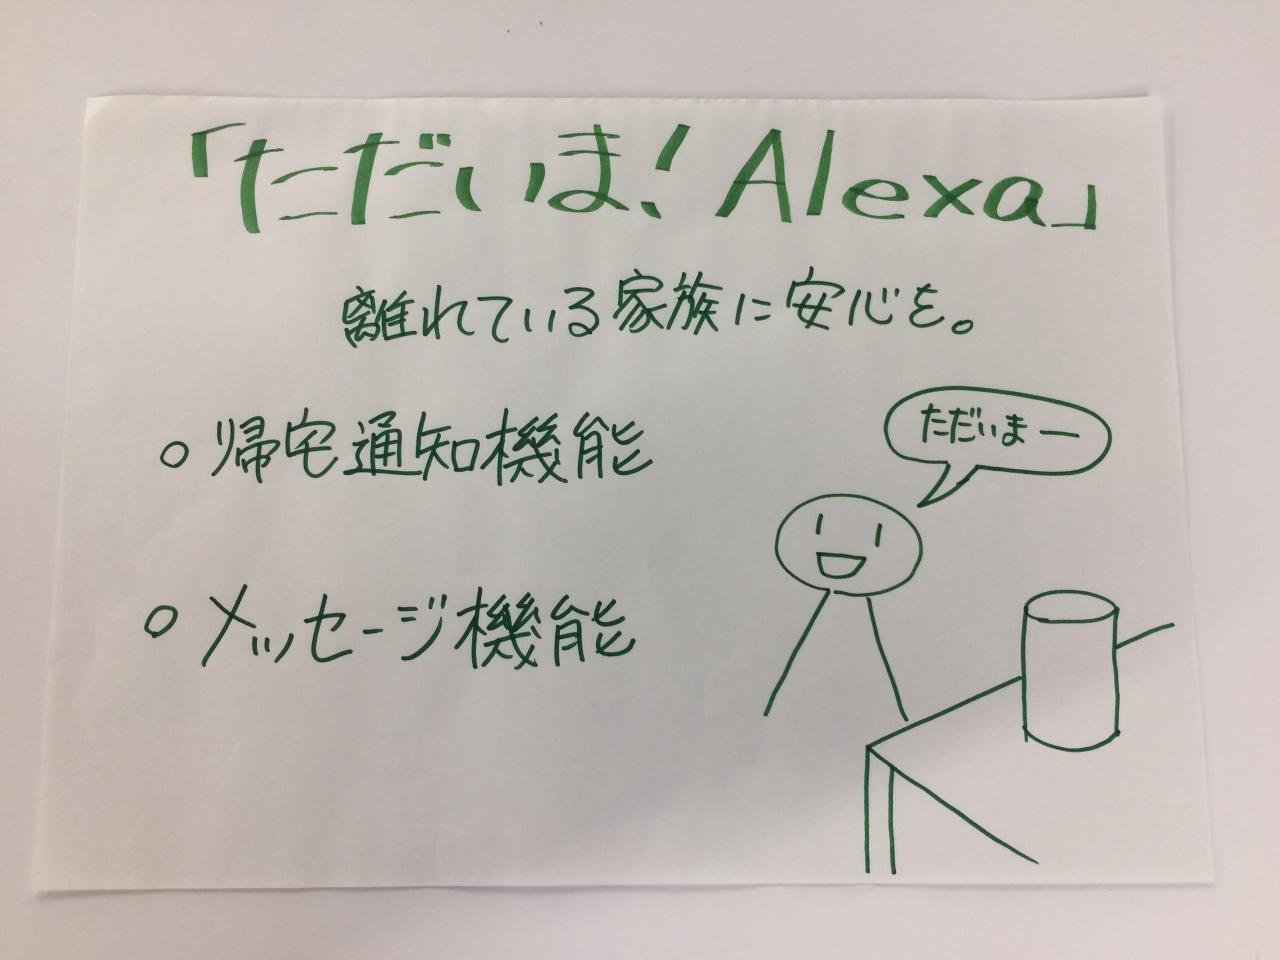 「ただいま！Alexa」
離れている家族に安心を。
○帰宅通知機能
○メッセージ機能
ただいまー